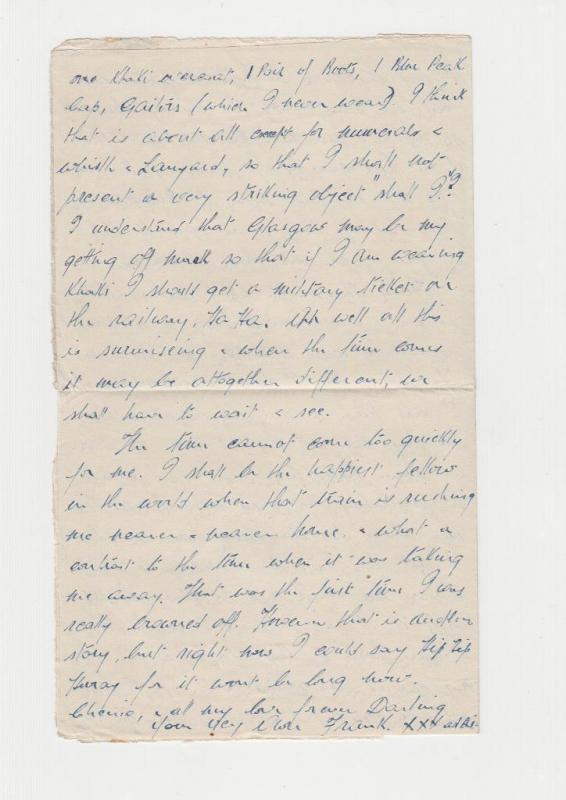 one Khaki overcoat, 1 Pair of Boots, 1 Blue Peak
Cap, Gaiters (which I never wear). I think
that is about all except for numerals &
whistle & Lanyard, so that I shall not
present a very striking object "shall I"?
I understand that Glasgow may be my
getting off mark so that if I am wearing
Khaki I should get a military ticket on
the railway, Ha Ha. Ahh well all this
is surmiseing & when the time comes
it may be altogether different, we
shall have to wait & see.
The time cannot come too quickly
for me. I shall be the happiest fellow
in the world when that train is rushing
me nearer & nearer home. & what a
contrast to the time when it was taking
me away. That was the first time I was
really browned off. However that is another
story, but right now I could say Hip Hip
Huray for it wont be long now.
Cheerio, & all my love forever Darling
Your Very Own Frank. XXX